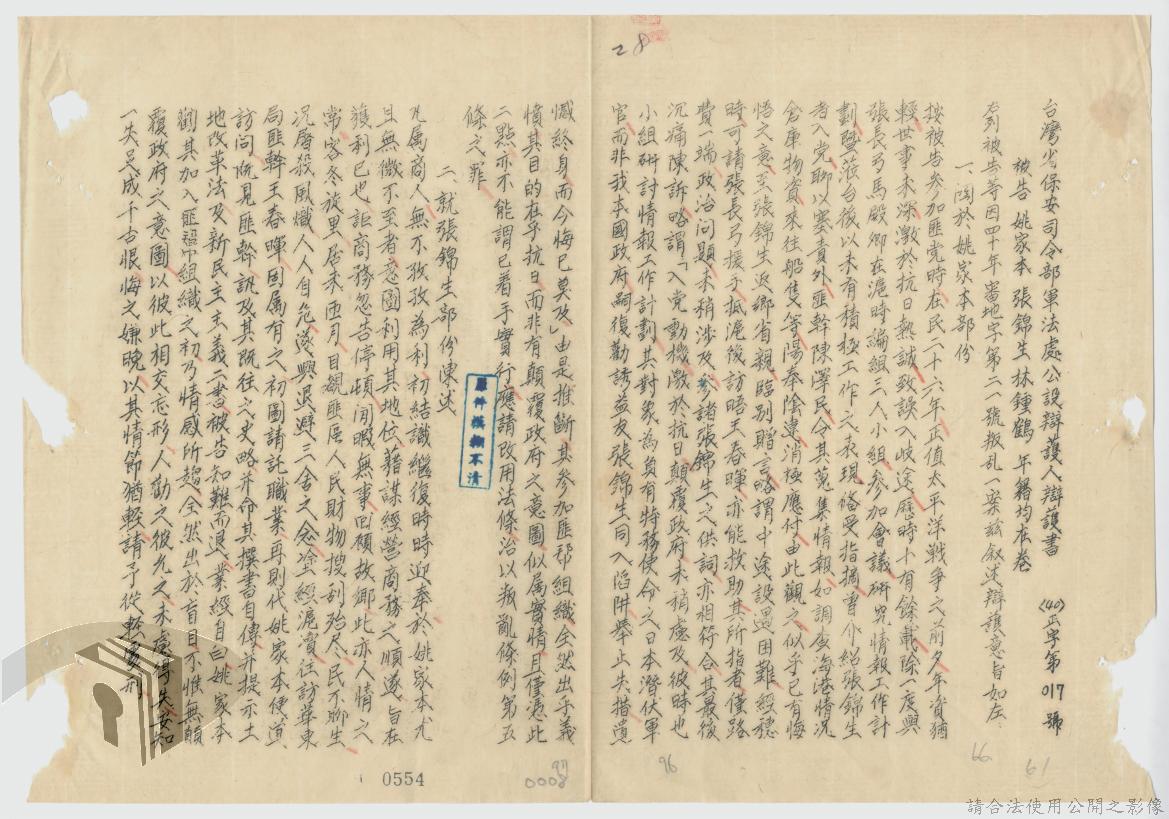 28
台灣省保安司令部軍法處公設辯護人辯護書 (40)正字第017號
被告 姚家本 張錦生 林鍾鶴 年籍均在卷
右列被告等因四十年審地字第二一號叛乱一案茲叙述辯護意旨如左
一、関於姚家本部份
按被告参加匪党時在民二十六年正值太平洋戦爭之前夕年資猶
輕世事未深激於抗日熱誠致誤入歧途歷時十有餘載除一度與
張長弓馬殿卿在滬時編組三人小組参加會議研究情報工作計
劃暨蒞台後以未有積極工作之表現備受指摘曾介紹張錦生
者入党聊以塞責外匪幹陳澤民令其蒐集情報如調查海港情況
倉庫物資來往船隻等陽奉陰違消極應付由此觀之似乎已有悔
悟之意至張錦生返鄉省親臨別贈言略謂中途設遇困難經穗
時可請張長弓援手抵滬後訪晤王春暉亦能救助其所指者僅路
費一端政治问題未稍涉及參諸張錦生之供詞亦相符合其最後
沉痛陳訴略謂「入党動機激於抗日顛覆政府未稍慮及彼時也
小組研討情報工作計劃其對象為負有特務使命之日本潛伏軍
官而非我本國政府嗣復勸誘益友張錦生同入陷阱舉止失措遺
憾終身而今悔已莫及」由是推斷其参加匪帮組織全然出乎義
憤其目的在乎抗日而非有顛覆政府之意圖似属實情且僅憑此
二點亦不能謂已着手實行應請改用法條治以叛亂條例第五
條之罪
二、就張錦生部份陳述
凡属商人無不孜孜為利初結識繼復時時迎奉於姚家本尤
且無微不至者意圖利用其地位藉謀經營商務之順遂旨在
獲利已也詎商務忽告停頓閒暇無事回顧故鄉此亦人情之
常客冬旋里居未匝月目覩匪區人民財物搜刮殆盡民不聊生
況屠殺風熾人人自危遂興退避三舍之念途經滬實往訪華東
局匪幹王春暉固属有之初圖請託職業再則代姚家本便道
訪问既見匪幹訊及其既往之史略并命其撰書自傳并提示土
地改革法及新民主主義二書被告知難而退業經自白姚家本
勸其加入匪帮組織之初乃情感所趨全然出於盲目不惟無顛
覆政府之意圖以彼此相交忘形人勸之彼允之未慮得失安知
一失足成千古恨悔之嫌晚以其情節猶輕請予從輕量刑
原件模糊不清
0554
97
0008
96
66
61
請合法使用公開之影像